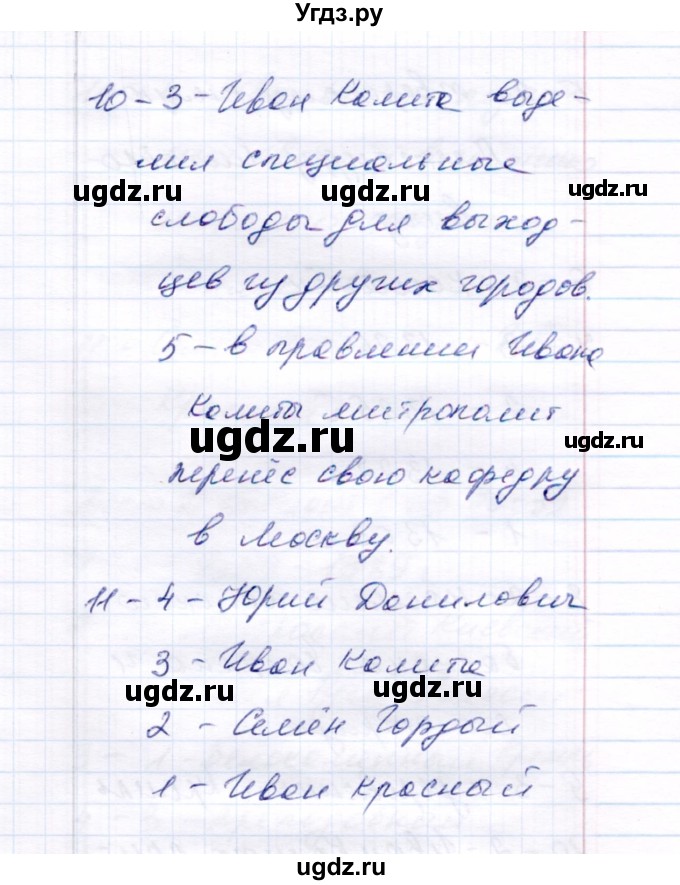 Угдз.ру
10 - 3 - Иван Калита выде-
лил специальные
ugdz.ru ugdz.ru ugdz.ru
слободы для выход-
цев из других городов.
5 - в правлении Ивана
Калиты митрополит
ugdz.ru ugdz.ru
перенёс свою кафедру
в Москву.
11 - 4 - Юрий Данилович
3 - Иван Калита
ugdz.ru ugdz.ru
2 - Семён Гордый
1 - Иван Красный
ugdz.ru